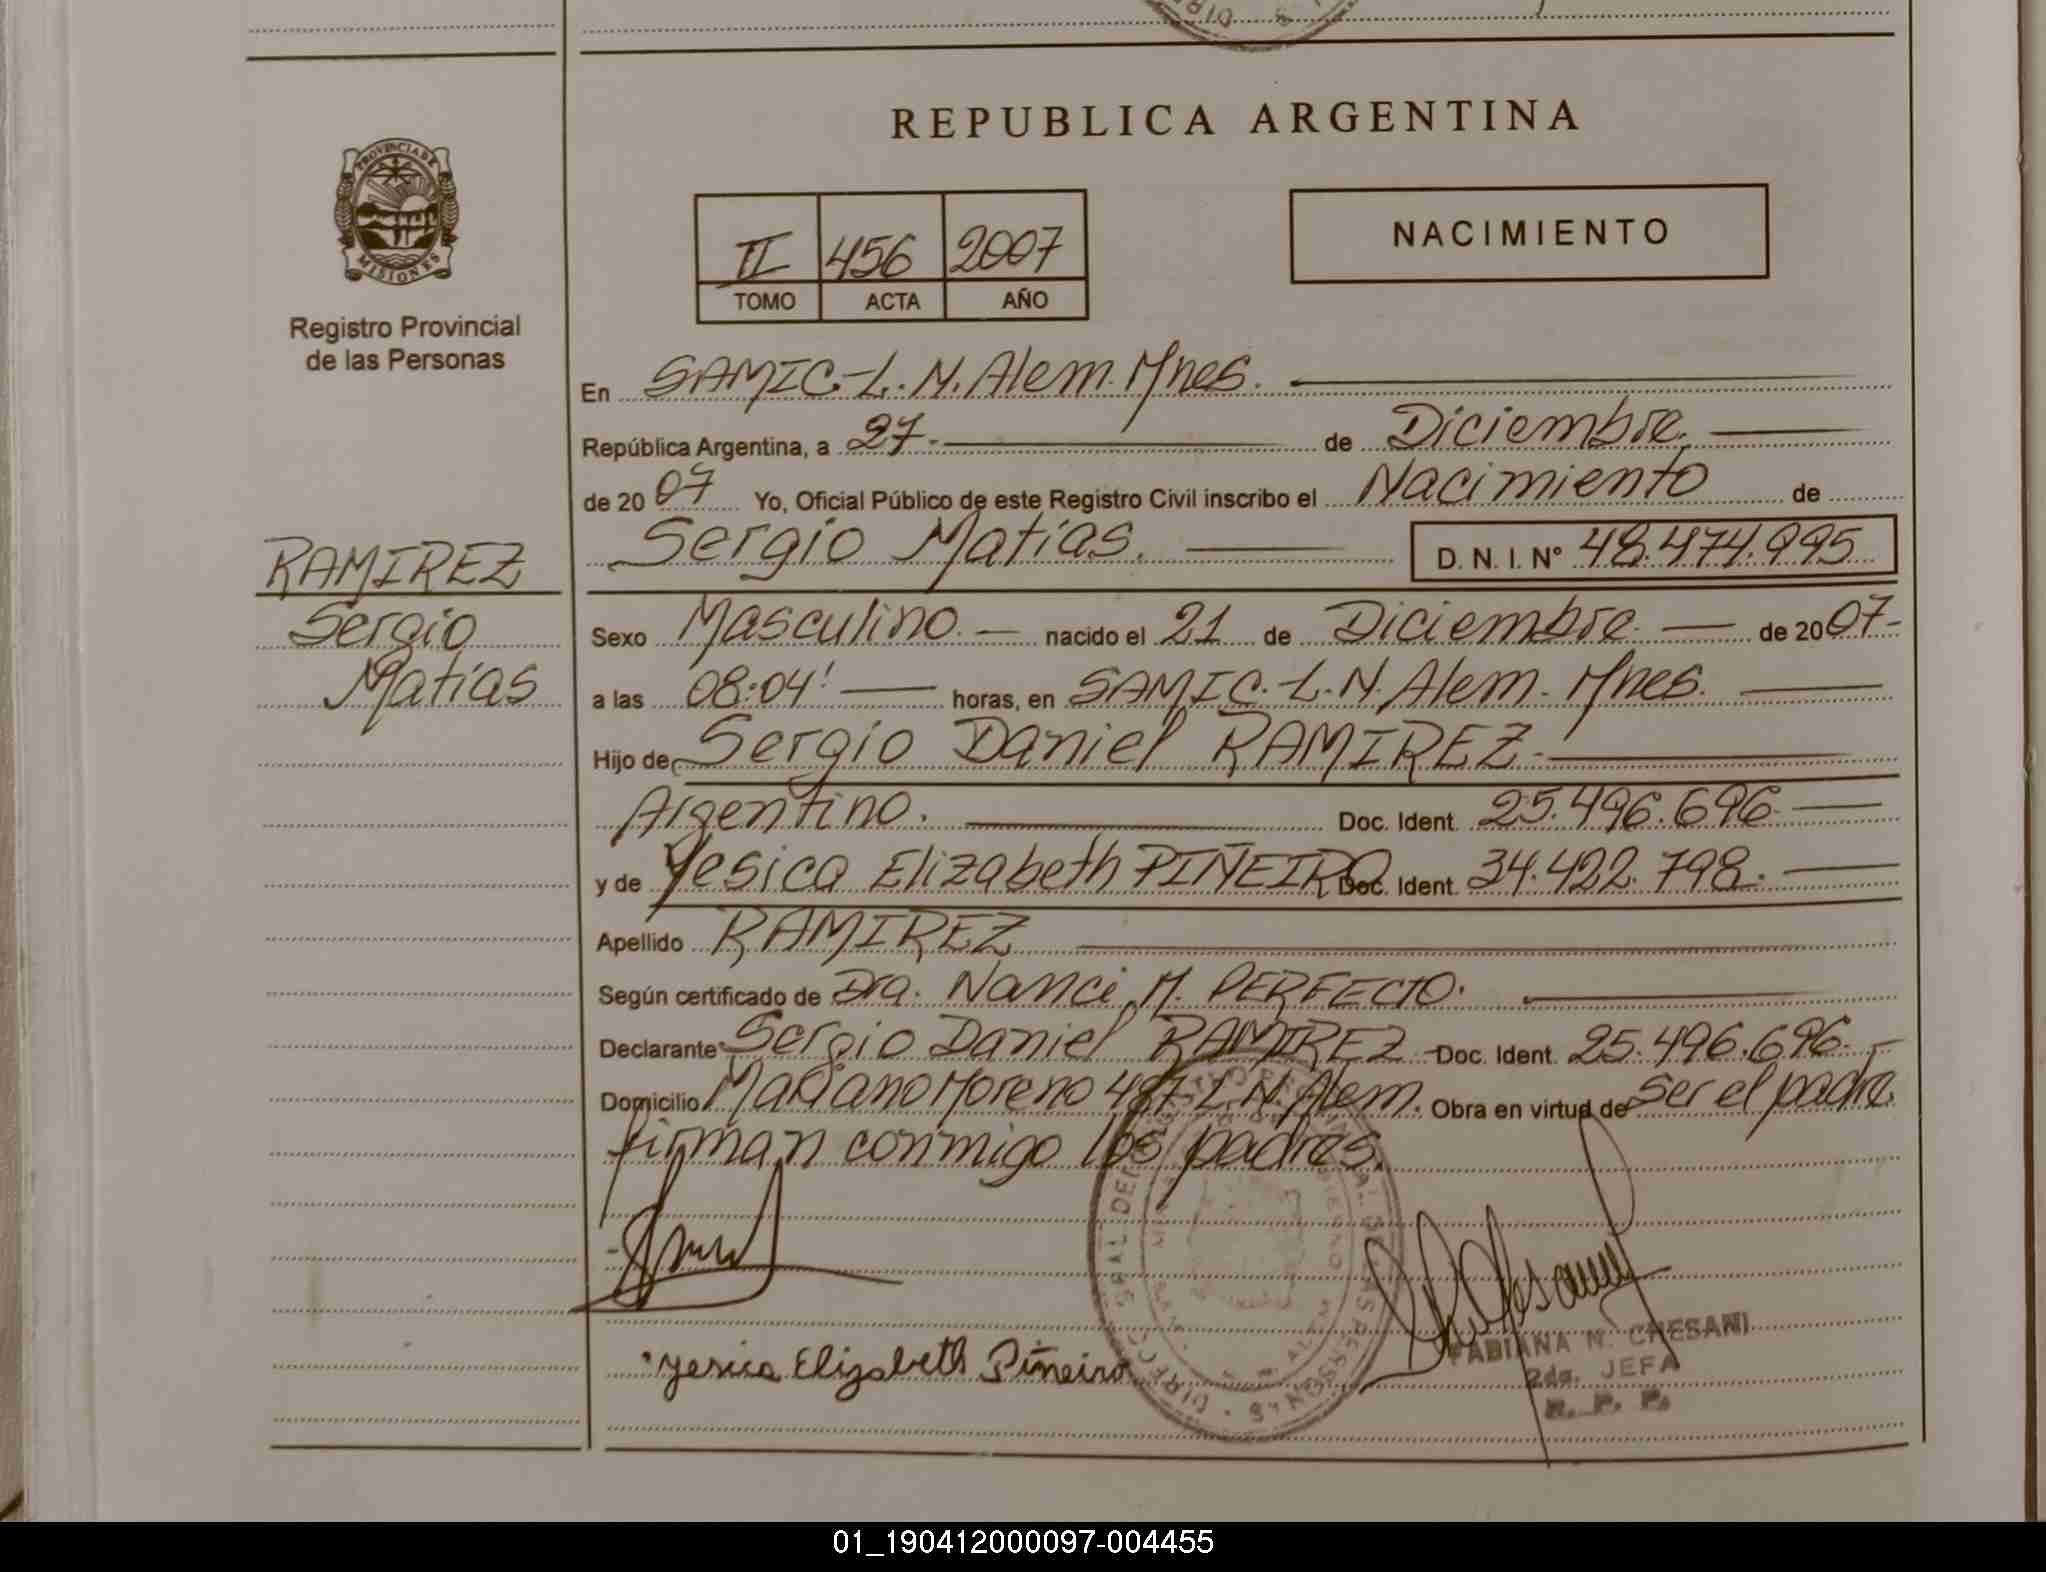 REPUBLICA ARGENTINA
PROVINCIA DE
MISIONES
Registro Provincial
de las Personas
II 456 2007
TOMO ACTA AÑO
NACIMIENTO
En SAMIC-L.N.Alem.Mnes.
República Argentina, a 27. de Diciembre.
de 2007 Yo, Oficial Público de este Registro Civil inscribo el Nacimiento de
Sergio Matías. D. N. I. Nº 48.474.995
RAMIREZ
Sergio
Matías
Sexo Masculino. nacido el 21 de Diciembre de 2007-
a las 08:04' horas, en SAMIC.L.N.Alem. Mnes.
Hijo de Sergio Daniel RAMIREZ-
Argentino. Doc. Ident. 25.496.696-
y de Yesica Elizabeth PIÑEIRO Doc. Ident. 34.422.798.
Apellido RAMIREZ
Según certificado de Dra. Nanci M. PERFECTO.
Declarante Sergio Daniel RAMIREZ Doc. Ident. 25.496.696.-
Domicilio Mariano Moreno 487 L.N.Alem. Obra en virtud de ser el padre
firman conmigo los padres.
Yesica Elizabeth Piñeiro
FABIANA N. CRESANI
2da. JEFA
R. P. P.
01_190412000097-004455